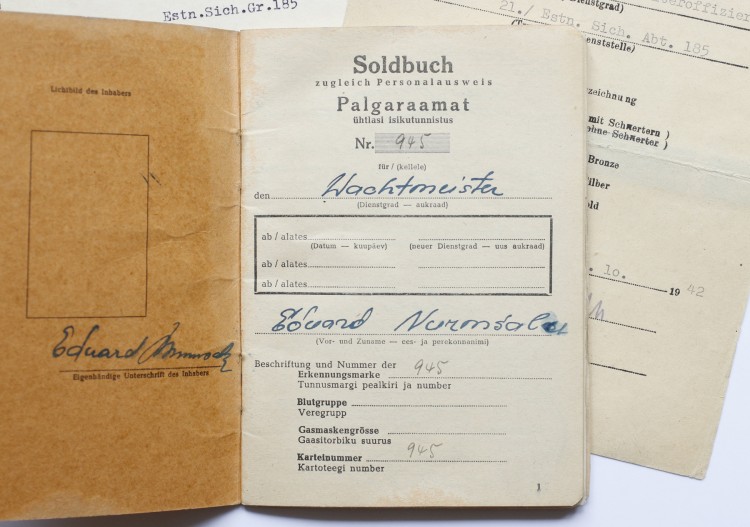 Estn.Sich.Gr.185
Lichtbild des Inhabers
Eduard
Eigenhändige Unterschrift des Inhabers
Soldbuch
zugleich Personalausweis
Palgaraamat
ühtlasi isikutunnistus
Nr. 945
für / (kellele)
den Wachtmeister
(Dienstgrad — aukraad)
ab / alates
(Datum — kuupäev) (neuer Dienstgrad — uus aukraad)
ab / alates
ab / alates
Eduard
(Vor- und Zuname — ees- ja perekonnanimi)
Beschriftung und Nummer der 945
Erkennungsmarke
Tunnusmargi pealkiri ja number
Blutgruppe
Veregrupp
Gasmaskengrösse
Gaasitorbiku suurus
Karteinummer 945
Kartoteegi number
1
teroffizier
Dienstgrad)
21./ Estn. Sich. Abt. 185
enststelle)
zeichnung
mit Schwertern )
ohne Schwerter )
Bronze
ilber
old
. 10. 1942